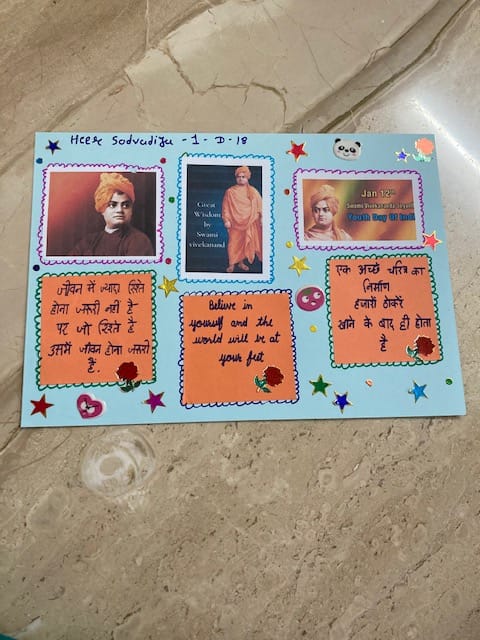 Heer Sadvadiya - 1 - D - 18
Great
Wisdom
by
Swami
vivekanand
Jan 12th
Swami Vivekananda Jayanti
Youth Day Of Indi
जीवन में ज्यादा रिश्ते
होना जरूरी नहीं है
पर जो रिश्ते है
उसमें जीवन होना जरूरी
है.
Believe in
yourself and the
world will be at
your feet
एक अच्छे चरित्र का
निर्माण
हजारो ठोकरे
खाने के बाद ही होता
है